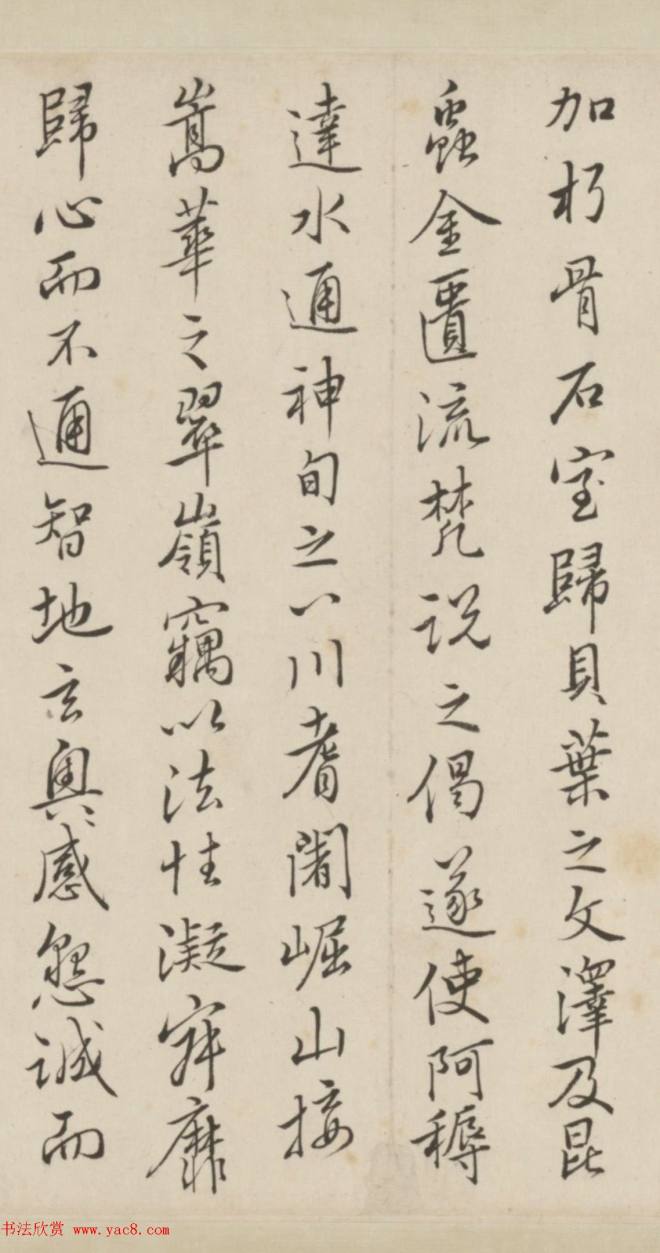 加朽骨石室歸貝葉之文澤及昆
蟲金匱流梵說之偈遂使阿耨
達水通神甸之八川耆闍崛山接
嵩華之翠嶺竊以法性凝寂靡
歸心而不通智地玄奧感懇誠而
书法欣赏 www.yac8.com